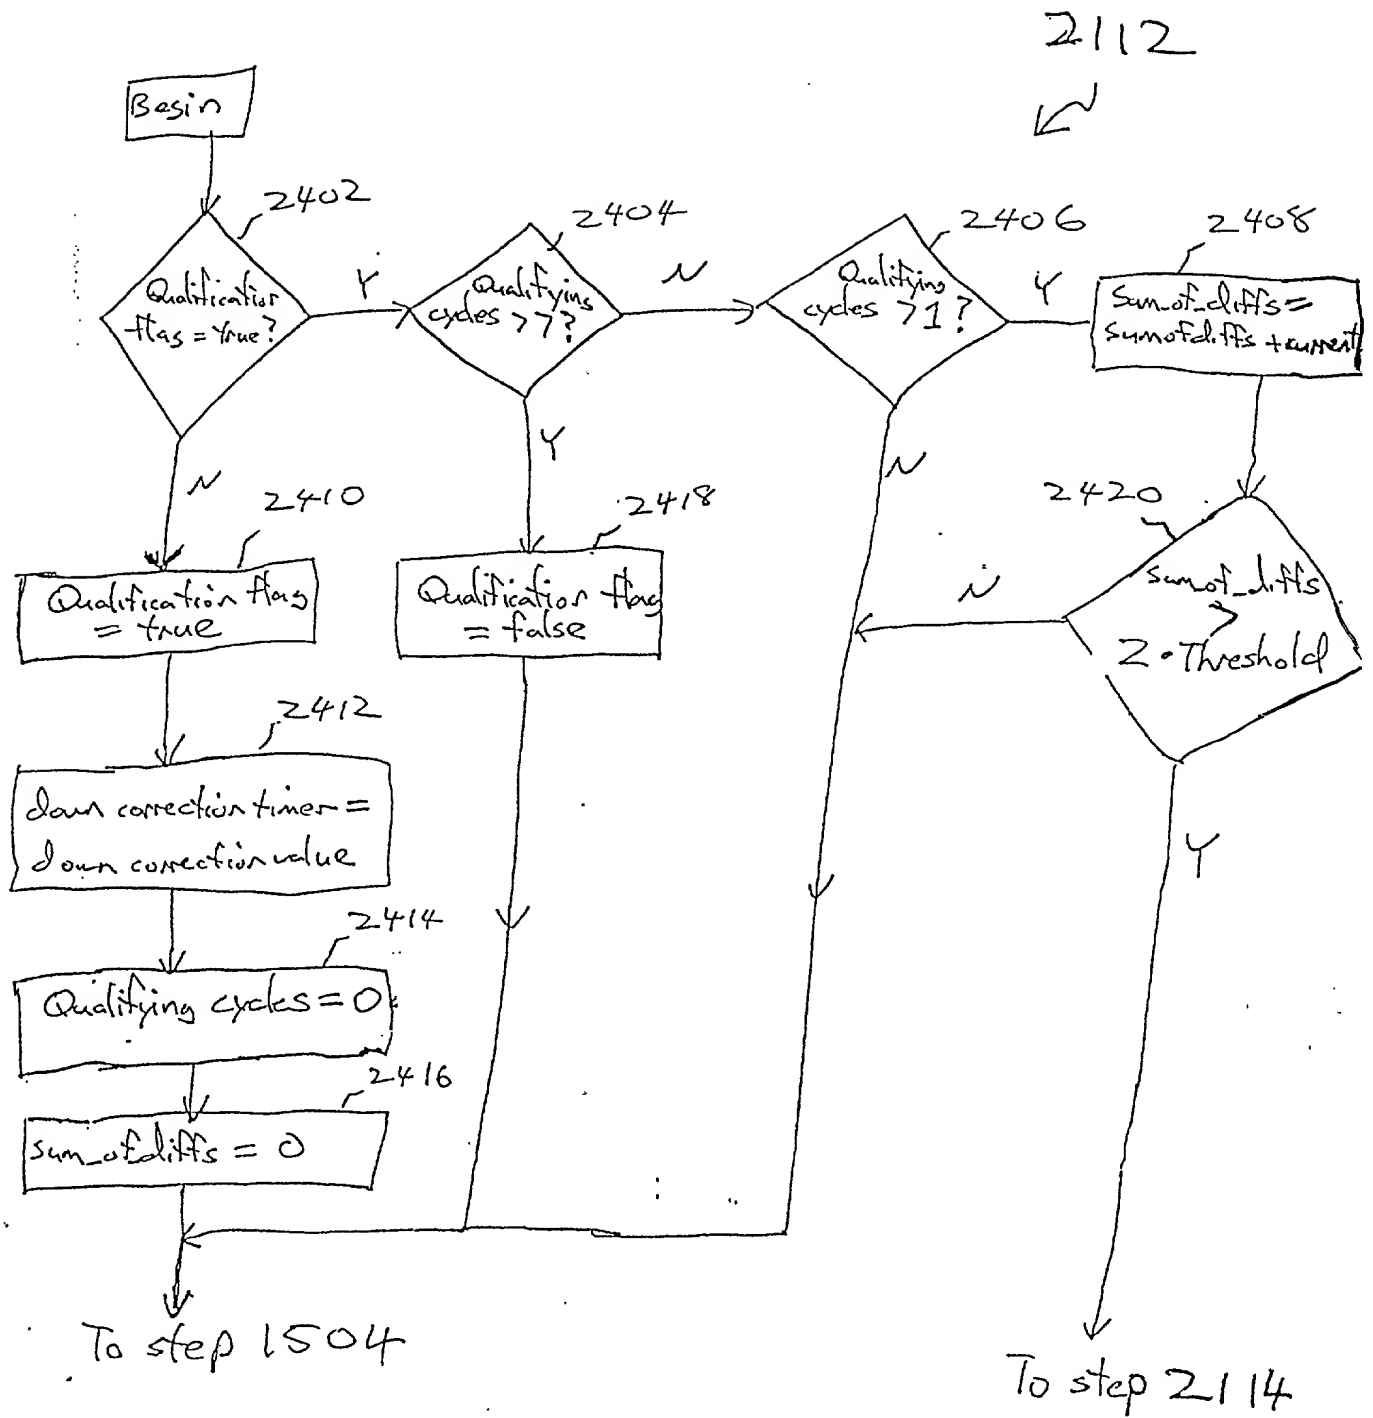 2112
Begin
2402
Qualification
flag = true?
Y
N
2404
Qualifying
cycles >7?
N
Y
2406
Qualifying
cycles >1?
Y
N
2408
Sum_of_diffs=
sumofdiffs +current
2410
Qualification flag
= true
2418
Qualification flag
= false
2420
sumof_diffs
>
2•Threshold
N
Y
2412
down correction timer =
down correction value
2414
Qualifying cycles = 0
2416
sum_ofdiffs = 0
To step 1504
To step 2114